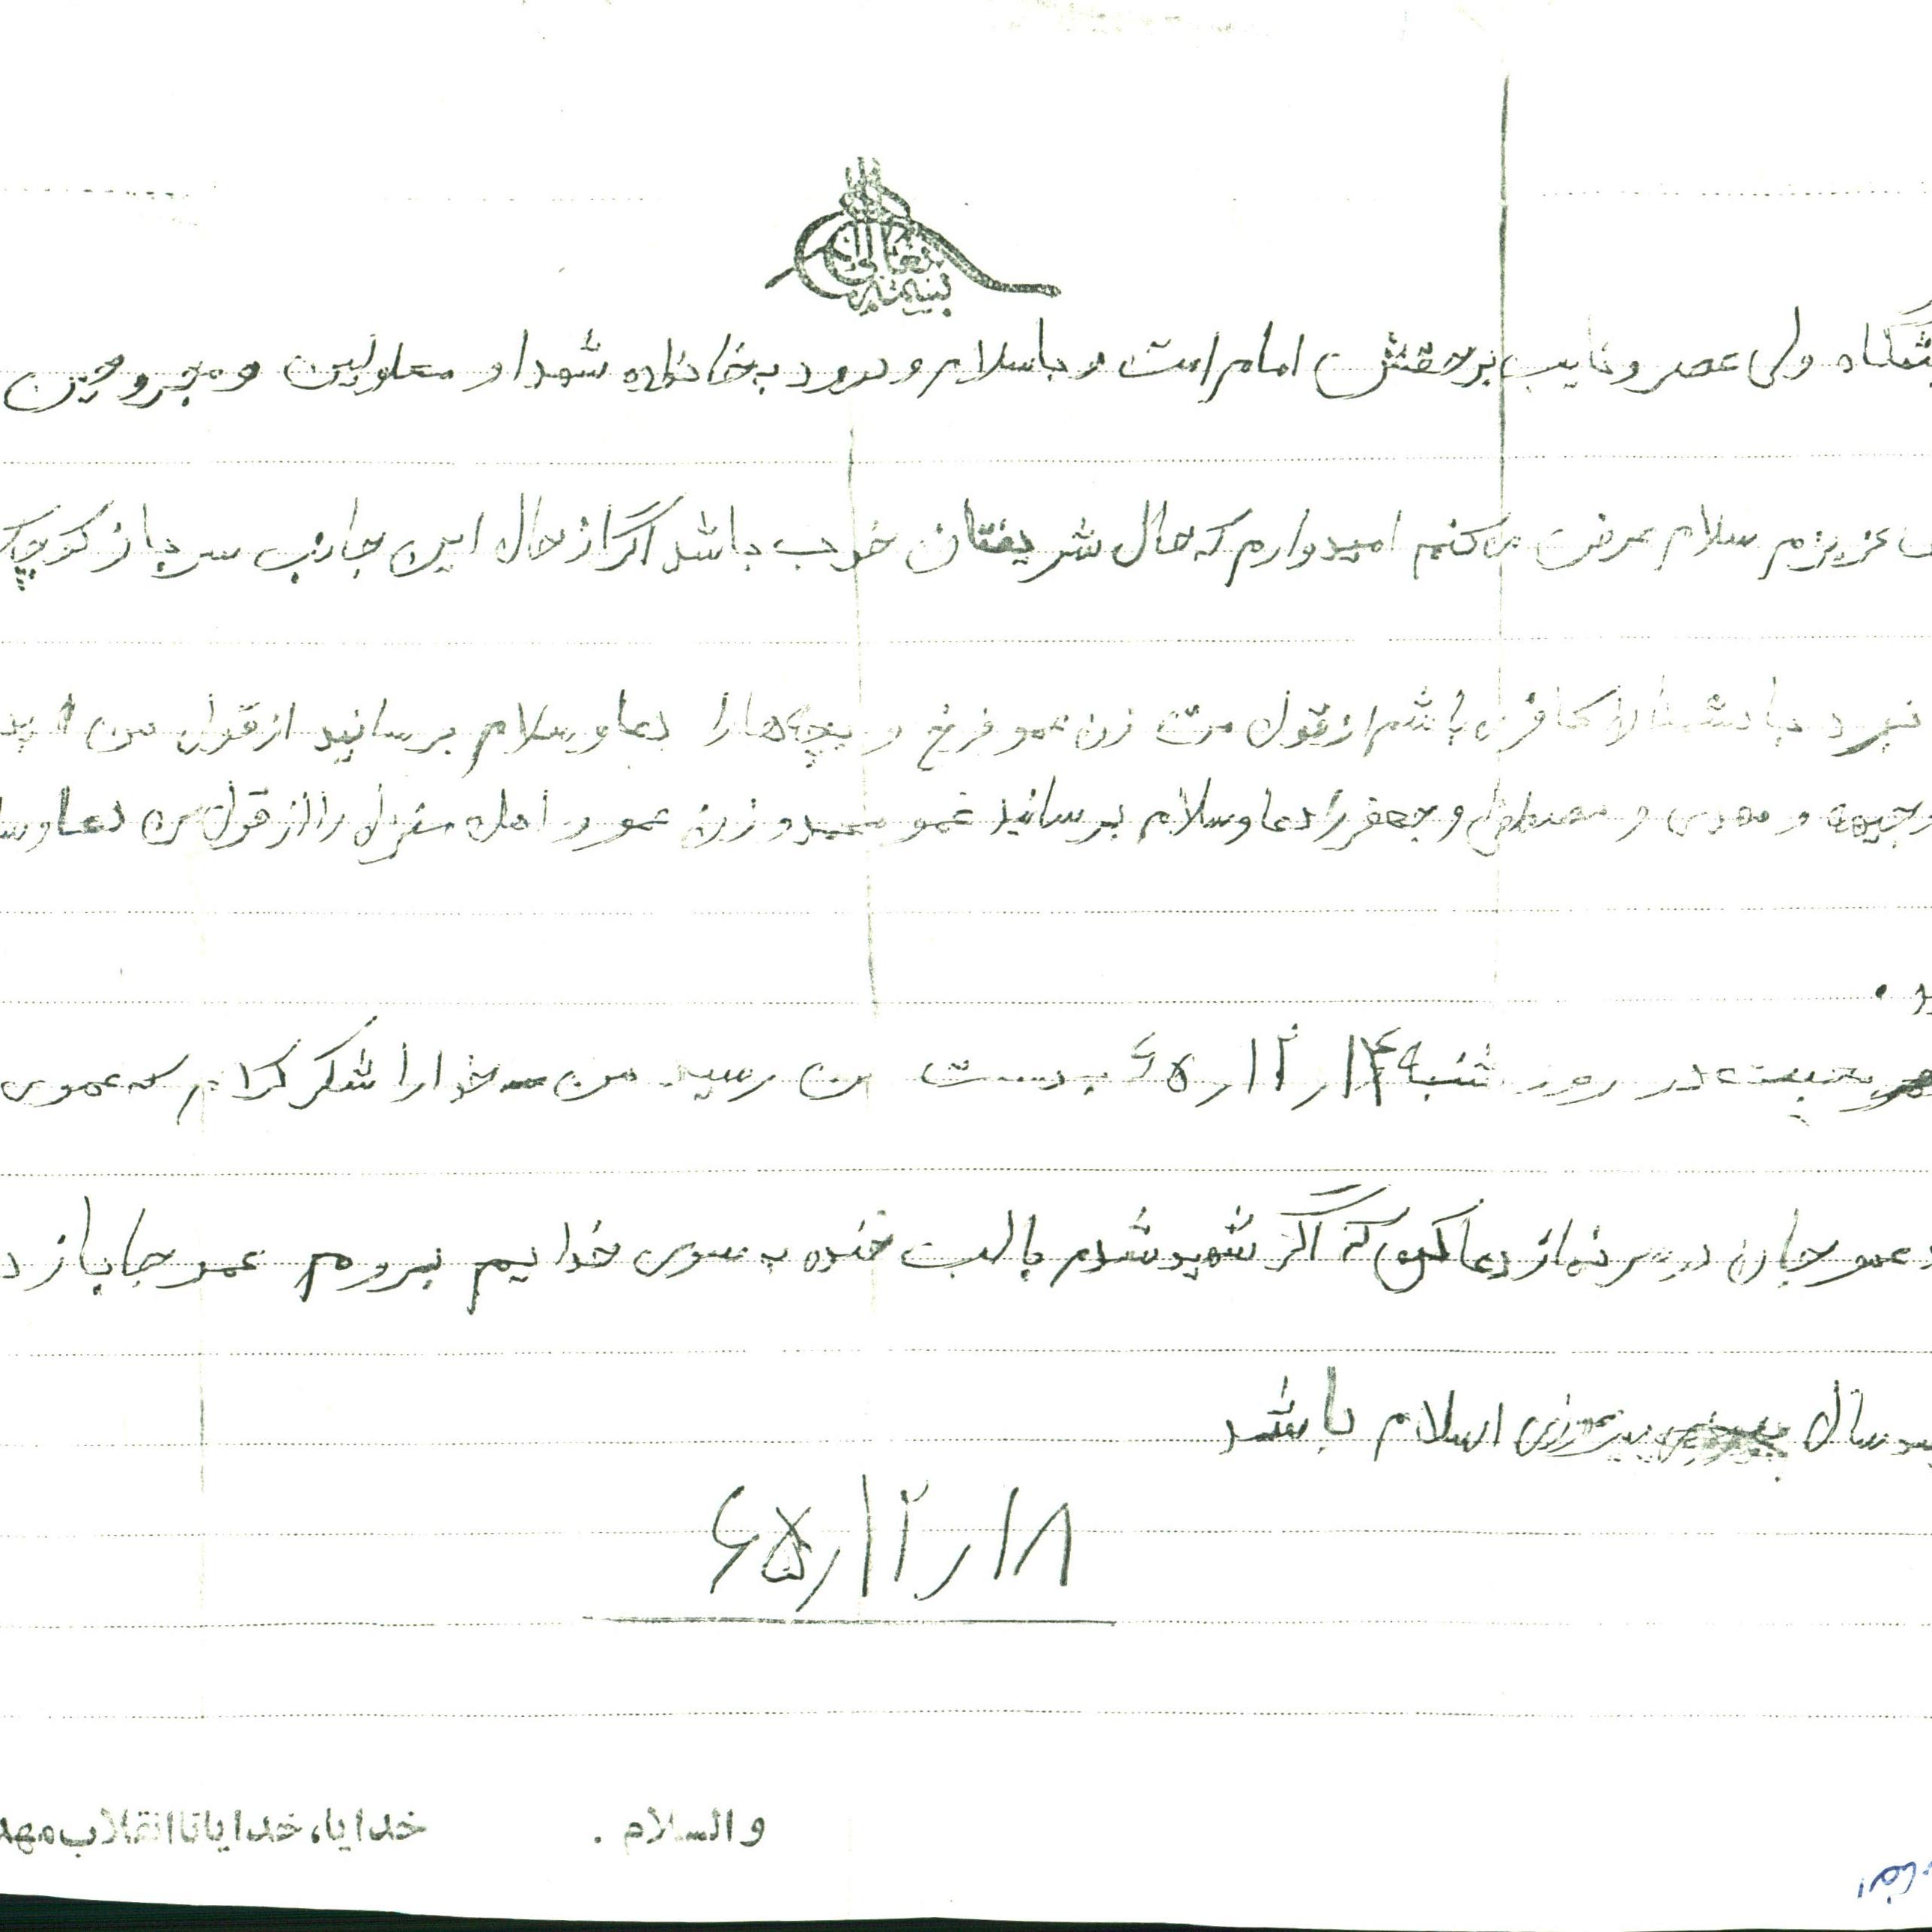 بسمه تعالی
ولی عصر و نایب برحقش امام امت و با سلام و درود به خانواده شهدا و معلولین و مجروحین
عزیزم سلام عرض می کنم امیدوارم که حال شریفتان خوب باشد اگر از حال این جانب سرباز کوچک
نبرد با دشمنان کافر باشم از قول من زن عمو فرخ و بچه ها را دعا و سلام برسانید از قول من
وجیهه و مهدی و مصطفی و جعفر را دعا و سلام برسانید عمو محمد و زن عمو و اهل منزل را از قول من دعا و
د .
در روز شنبه ۶۵/۱۱/۱۴ بدست من رسید من خدا را شکر کردم که عموی
عمو جان در سر نماز دعا کن که اگر شهید شدم با لب خنده به سوی خدایم بروم عمو جا باز
سال پیروزی اسلام باشد
۶۵/۱۱/۱۸
والسلام . خدایا، خدایا تا انقلاب مهد